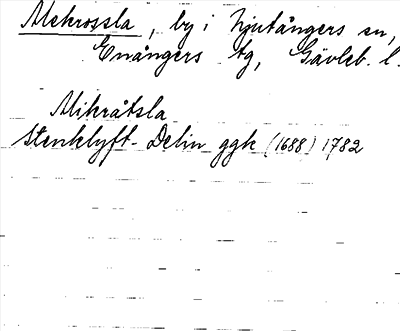 Mekrossla, by i Njutångers sn,
Enångers tg, Gävleb. l.
Mikråtsla
Stenklyft- Delin ggk (1688) 1782